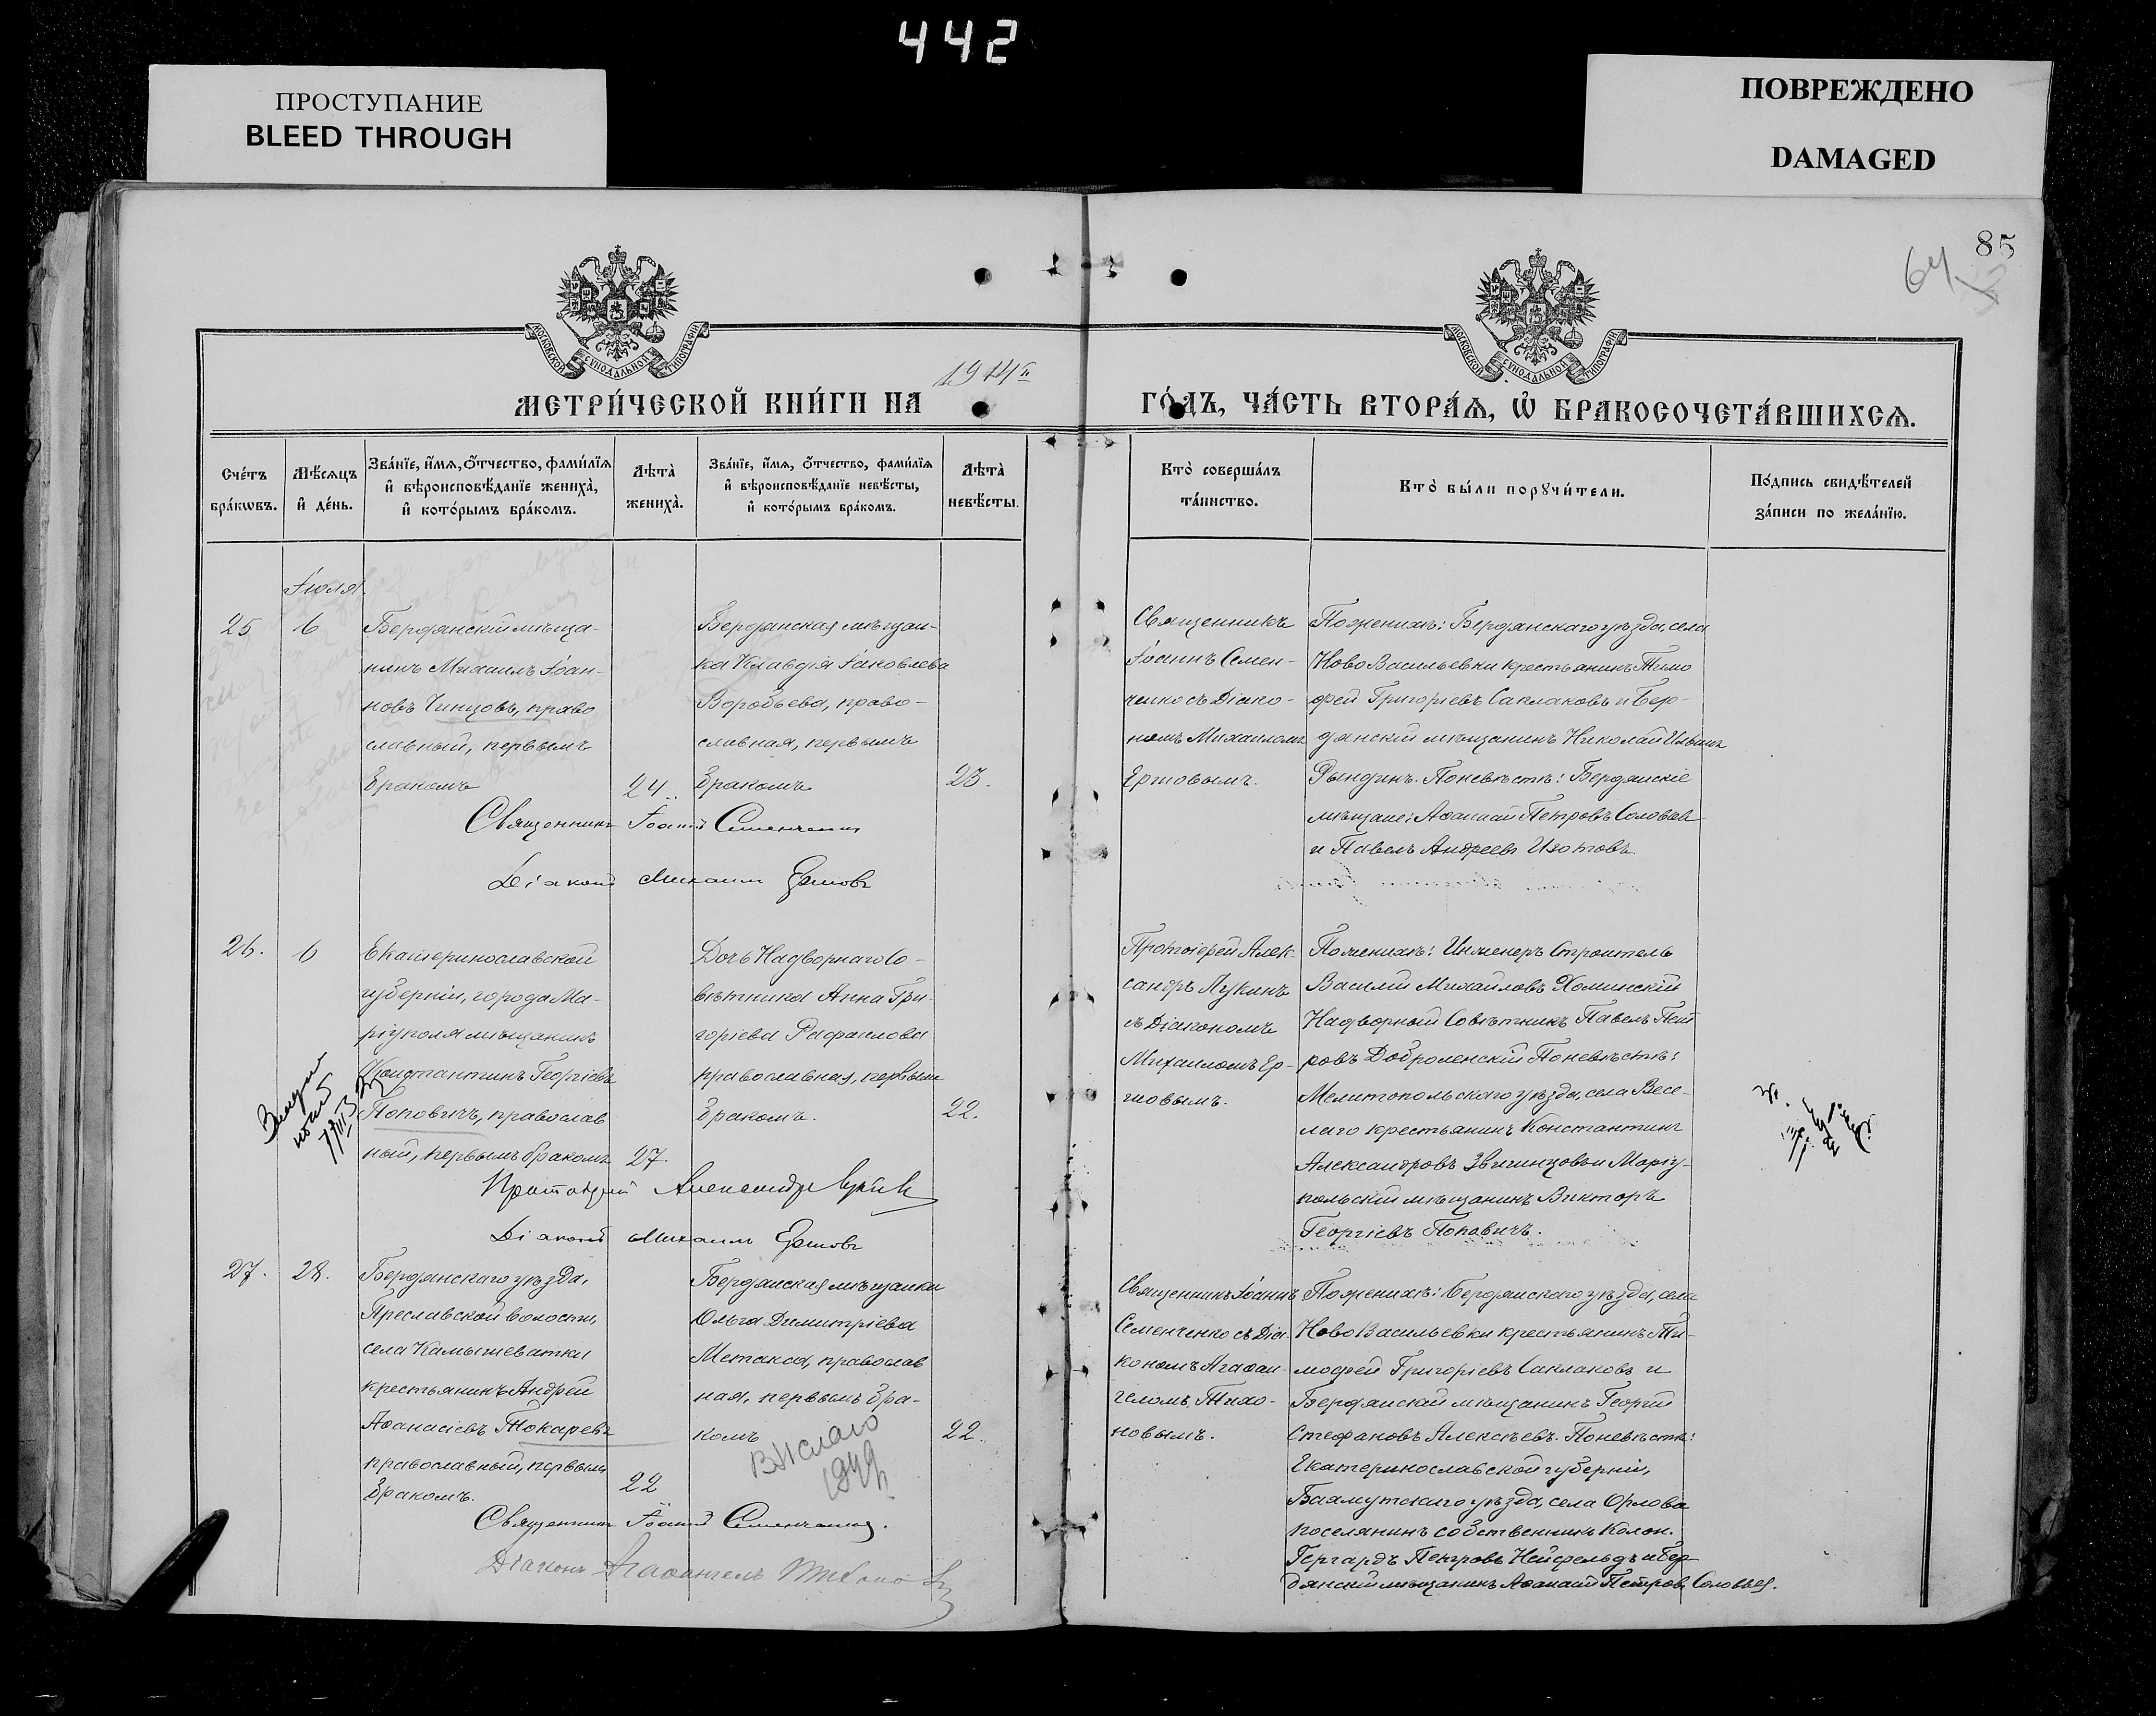 442
ПРОСТУПАНИЕ
BLEED THROUGH
ПОВРЕЖДЕНО
DAMAGED
85
64
МОСКОВСКОЙ СѴНОДАЛЬНОЙ ТИПОГРАФІИ
МОСКОВСКОЙ СѴНОДАЛЬНОЙ ТИПОГРАФІИ
МЕТРИ́ЧЕСКОЙ КНИ́ГИ НА 1914й
ГО́ДЪ, ЧА́СТЬ ВТОРА́Ѧ, Ѡ҆ БРАКОСОЧЕТА́ВШИХСѦ.
Сче́тъ
бра́кωвъ.
Мѣ́сѧцъ
и҆ де́нь.
Зва́нїе, и҆́мѧ, ѻ҆́тчество, фами́лїѧ
и҆ вѣроисповѣ́данїе жениха̀,
и҆ кото́рымъ бра́комъ.
Лѣта̀
жениха̀.
Зва́нїе, и҆́мѧ, ѻ҆́тчество, фами́лїѧ
и҆ вѣроисповѣ́данїе невѣ́сты,
и҆ кото́рымъ бра́комъ.
Лѣта̀
невѣ́сты.
Кто̀ соверша́лъ
та́инство.
Кто̀ бы́ли порꙋчи́тели.
По́дпись свидѣ́телей
за́писи по жела́нїю.
Іюля
25
6
Бердянскій мѣща-
нинъ Михаилъ Іоан-
новъ Чинцовъ, право
славный, первымъ
бракомъ
24.
Бердянская мѣщан-
ка Клавдія Іаковлева
Воробьева, право-
славная, первымъ
бракомъ
23.
Священникъ
Іоаннъ Семен-
ченко съ Діако-
номъ Михаиломъ
Ершовымъ.
По женихѣ: Бердянскаго уѣзда, села
Ново Васильевки крестьянинъ Тимо
фей Григоріевъ Саклаковъ и Бер-
дянскій мѣщанинъ Николай Ильинъ
Рындинъ. По невѣстѣ: Бердянскіе
мѣщане: Аѳанасій Петровъ Соловьев
и Павелъ Андреевъ Изотовъ
Священникъ Іоаннъ Семенченко
Діаконъ Михаилъ Ершовъ
26.
6
Екатеринославской
губерніи, города Ма-
ріуполя мѣщанинъ
Константинъ Георгіевъ
Поповичъ, православ
ный, первымъ бракомъ
27.
Дочь Надворнаго Со-
вѣтника Анна Гри-
горіева Рафаилова
православная, первымъ
бракомъ.
22.
Протоіерей Алек-
сандръ Лукинъ
съ Діакономъ
Михаиломъ Ер-
шовымъ.
По женихѣ: Инженеръ Строитель
Василій Михайловъ Хоминскій
Надворный Совѣтникъ Павелъ Пет
ровъ Доброленскій По невѣстѣ:
Мелитопольскаго уѣзда, села Весе-
лаго крестьянинъ Константинъ
Александровъ Звягинцовъ и Маріу-
польскій мѣщанинъ Викторъ
Георгіевъ Поповичъ.
Протоіерей Александръ Лукинъ
Діаконъ Михаилъ Ершовъ
27.
28.
Бердянскаго уѣзда,
Преславской волости,
села Камышеватки
крестьянинъ Андрей
Аѳанасіевъ Токаревъ
православный, первымъ
бракомъ.
22
Бердянская мѣщанка
Ольга Димитріева
Метакса, православ
ная, первымъ бра-
комъ
22.
Священникъ Іоаннъ
Семенченко съ Діа-
кономъ Агаѳан-
геломъ Тихо-
новымъ.
По женихѣ: Бердянскаго уѣзда, села
Ново Васильевки крестьянинъ Ти-
мофей Григоріевъ Саклаковъ и
Бердянскій мѣщанинъ Георгій
Стефановъ Алексѣевъ. По невѣстѣ:
Екатеринославской губерніи,
Бахмутскаго уѣзда, села Орлова
поселянинъ собственникъ Колон.
Гергардъ Петровъ Нейфельдъ и Бер
дянскій мѣщанинъ Аѳанасій Петровъ Соловьев.
Священникъ Іоаннъ Семенченко.
Діаконъ Агаѳангелъ Тихоновъ